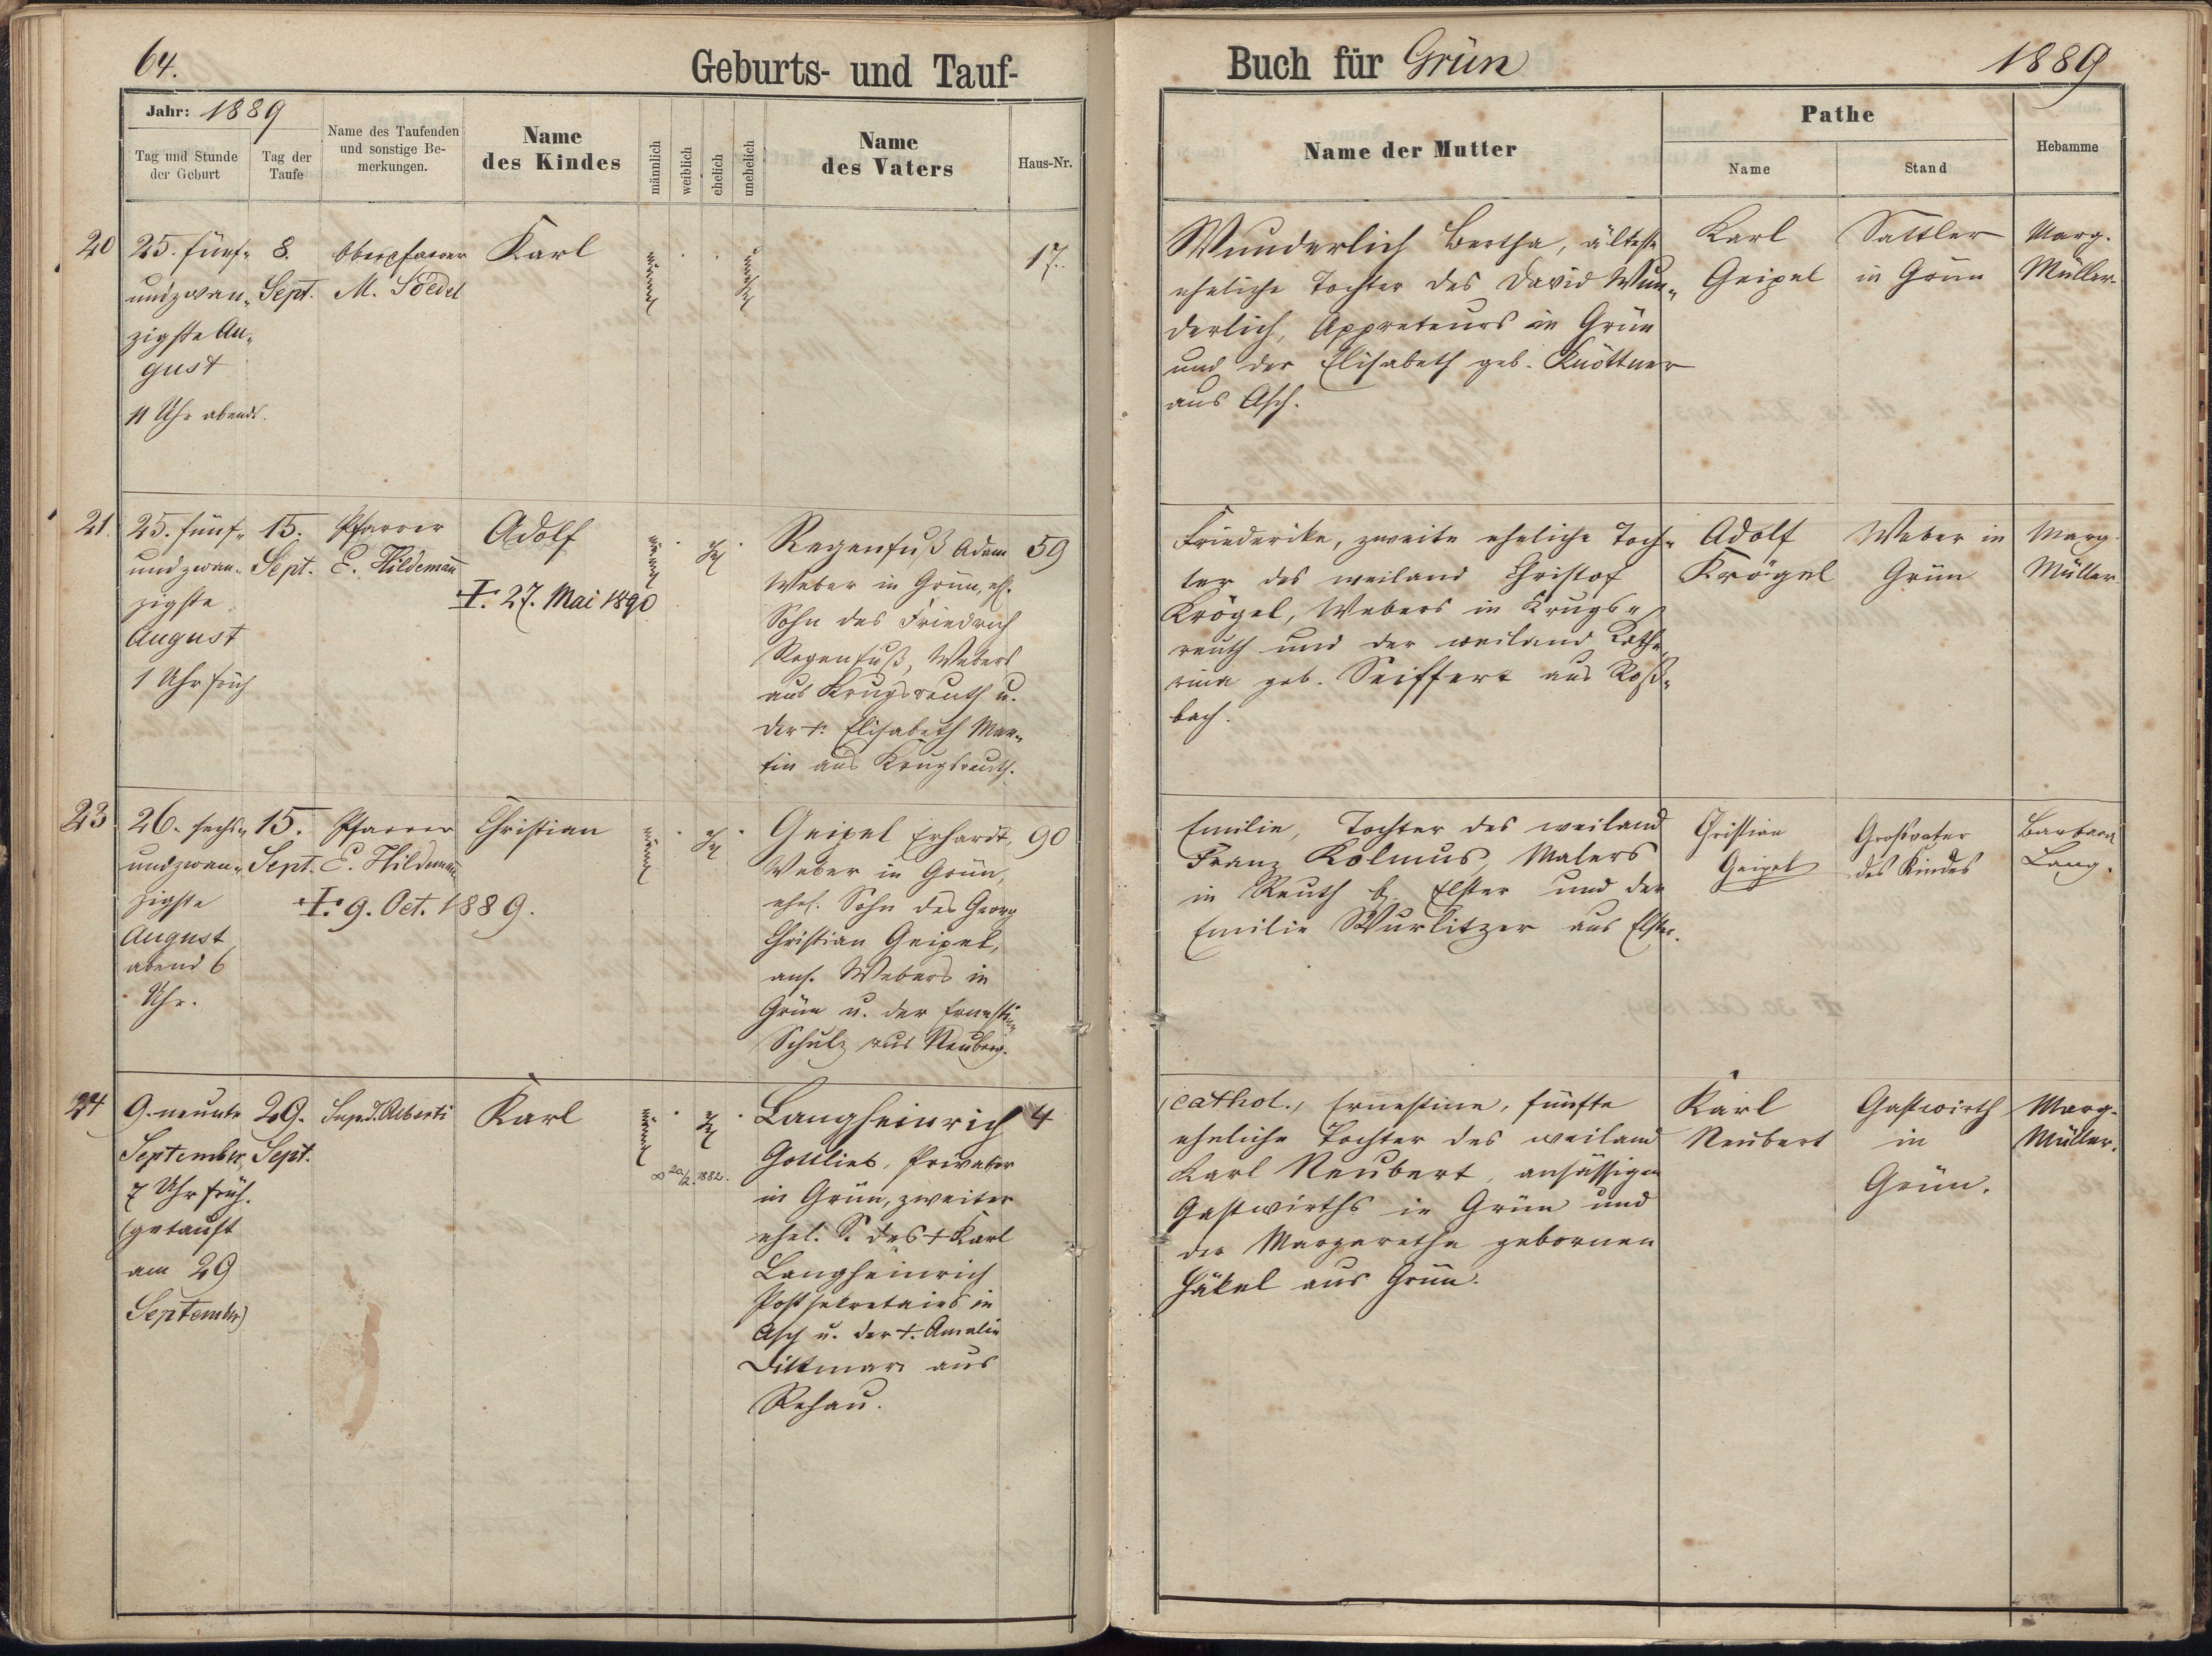 64.
Geburts- und Tauf-
Jahr: 1889
Tag und Stunde
der Geburt
Tag der
Taufe
Name des Taufenden
und sonstige Be-
merkungen.
Name
des Kindes
männlich
weiblich
ehelich
unehelich
Name
des Vaters
Haus-Nr.
20
25. fünf-
undzwan-
zigste Au-
gust
11 Uhr abends.
8.
Sept.
Oberpfarrer
M. Soedel
Karl
männl
unehel
17.
21.
25. fünf-
undzwan-
zigste
August
1 Uhr früh
15.
Sept.
Pfarrer
E. Hildemañ
Adolf
†. 27. Mai 1890
männl
ehel
Regenfuß Adam
Weber in Grün, ehl.
Sohn des Friedrich
Regenfuß, Webers
aus Krugsreuth u.
der †. Elisabeth Mar-
tin aus Krugsreuth.
59
23
26. sechs-
undzwan-
zigste
August
abend 6
Uhr.
15.
Sept.
Pfarrer
E. Hildemañ
†. 9. Oct. 1889.
Christian
männl
ehel
Geipel Erhardt,
Weber in Grün,
ehel. Sohn des Georg
Christian Geipel,
ans. Webers in
Grün u. der Ernestine
Schulz aus Neuberg.
90
24
9. neunte
September,
7 Uhr früh.
(getauft
am 29
September)
29.
Sept.
Sup. T. Alberti
Karl
männl
ehel
∞ 20/2. 1882.
Langheinrich
Gottlieb, Privatier
in Grün, zweiter
ehel. S. des † Karl
Langheinrich
Postsekretairs in
Asch u. der †. Amalie
Dittmar aus
Rehau.
4
Buch für Grün
1889
Name der Mutter
Pathe
Name
Stand
Hebamme
Wunderlich Bertha, älteste
eheliche Tochter des David Wun-
derlich, Appreteurs in Grün
und der Elisabeth geb. Knöttner
aus Asch.
Karl
Geipel
Sattler
in Grün
Marg.
Müller.
Friederike, zweite eheliche Toch-
ter des weiland Christof
Krögel, Webers in Krugs-
reuth und der weiland Katha-
rina geb. Seiffert aus Roß-
bach.
Adolf
Krögel
Weber in
Grün
Marg.
Müller
Emilie, Tochter des weiland
Franz Kolmus, Malers
in Reuth b. Elster und der
Emilie Wurlitzer aus Elster.
Christian
Geipel
Großvater
des Kindes
Barbara
Lang.
(cathol.) Ernestine, fünfte
eheliche Tochter des weiland
Karl Neubert, ansässigen
Gastwirths in Grün und
der Margaretha gebornen
Häkel aus Grün.
Karl
Neubert
Gastwirth
in
Grün.
Marg.
Müller.